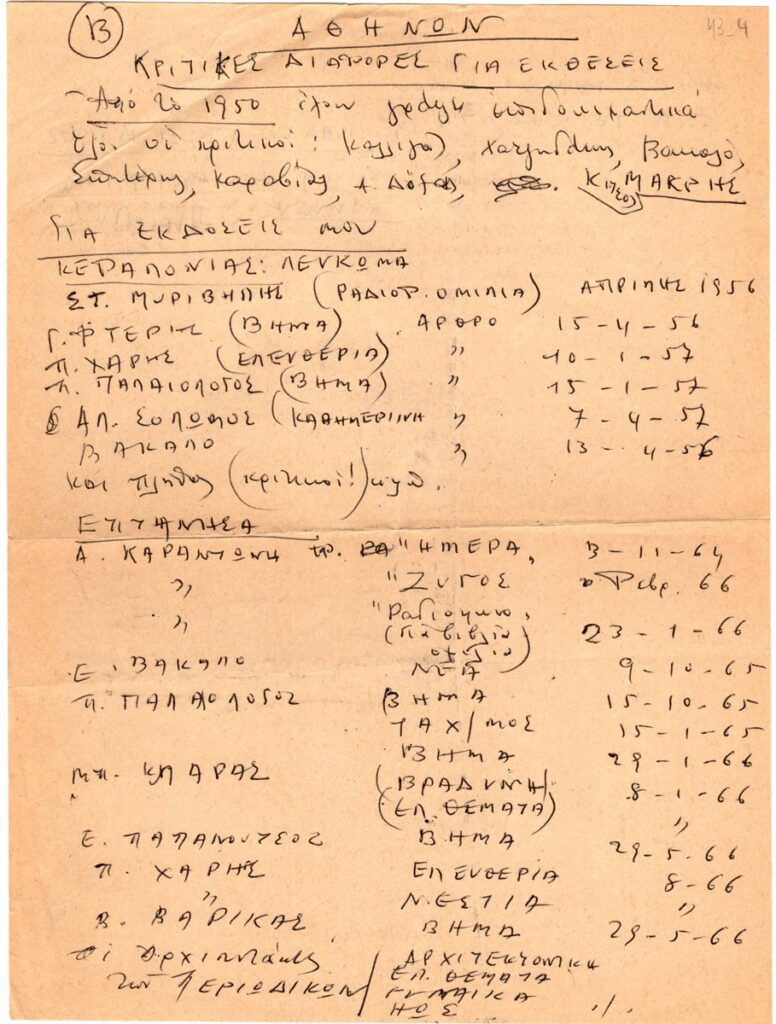 Β ΑΘΗΝΩΝ 43-4
ΚΡΙΤΙΚΕΣ ΔΙΑΦΟΡΕΣ ΓΙΑ ΕΚΘΕΣΕΙΣ
Από το 1950 έχουν γράψη επιδοκιμαστικά
όλοι οι κριτικοί: Καλλιγάς, Χατζηδάκης, Βακαλό,
Σπητέρης, Καραβίας, Δόξας, Κίτσος ΜΑΚΡΗΣ
ΓΙΑ ΕΚΔΟΣΕΙΣ ΜΟΥ
ΚΕΦΑΛΟΝΙΑΣ: ΛΕΥΚΩΜΑ
ΣΤ. ΜΥΡΙΒΗΛΗΣ (ΡΑΔΙΟΦ. ΟΜΙΛΙΑ) ΑΠΡΙΛΗΣ 1956
Γ. ΦΤΕΡΗΣ (ΒΗΜΑ) ΑΡΘΡΟ 15-4-56
Π. ΧΑΡΗΣ (ΕΛΕΥΘΕΡΙΑ) " 10-1-57
Π. ΠΑΛΑΙΟΛΟΓΟΣ (ΒΗΜΑ) " 15-1-57
ΑΛ. ΣΟΛΩΜΟΣ (ΚΑΘΗΜΕΡΙΝΗ " 7-4-57
ΒΑΚΑΛΟ " 13-4-56
και πλήθος (κριτικοί!)
ΕΠΤΑΝΗΣΑ
Α. ΚΑΡΑΝΤΩΝΗ "ΗΜΕΡΑ, 3-11-64
" "ΖΥΓΟΣ Φεβρ. 66
" "Ραδιοφωνο,
(Για βιβλία
σχόλιο) 23-1-66
Ε. ΒΑΚΑΛΟ ΝΕΑ 9-10-65
Π. ΠΑΛΑΙΟΛΟΓΟΣ ΒΗΜΑ 15-10-65
ΤΑΧ/ΜΟΣ 15-1-65
ΒΗΜΑ 29-1-66
ΜΠ. ΚΛΑΡΑΣ (ΒΡΑΔΥΝΗ) 8-1-66
" (ΕΛ. ΘΕΜΑΤΑ) "
Ε. ΠΑΠΑΝΟΥΤΣΟΣ ΒΗΜΑ 29-5-66
Π. ΧΑΡΗΣ ΕΛΕΥΘΕΡΙΑ 8-66
" Ν. ΕΣΤΙΑ "
Β. ΒΑΡΙΚΑΣ ΒΗΜΑ 29-5-66
Οι Αρχισυντάκτες ΑΡΧΙΤΕΚΤΟΝΙΚΗ
των ΠΕΡΙΩΔΙΚΩΝ / ΕΛ. ΘΕΜΑΤΑ
ΓΥΝΑΙΚΑ
ΗΩΣ ./.